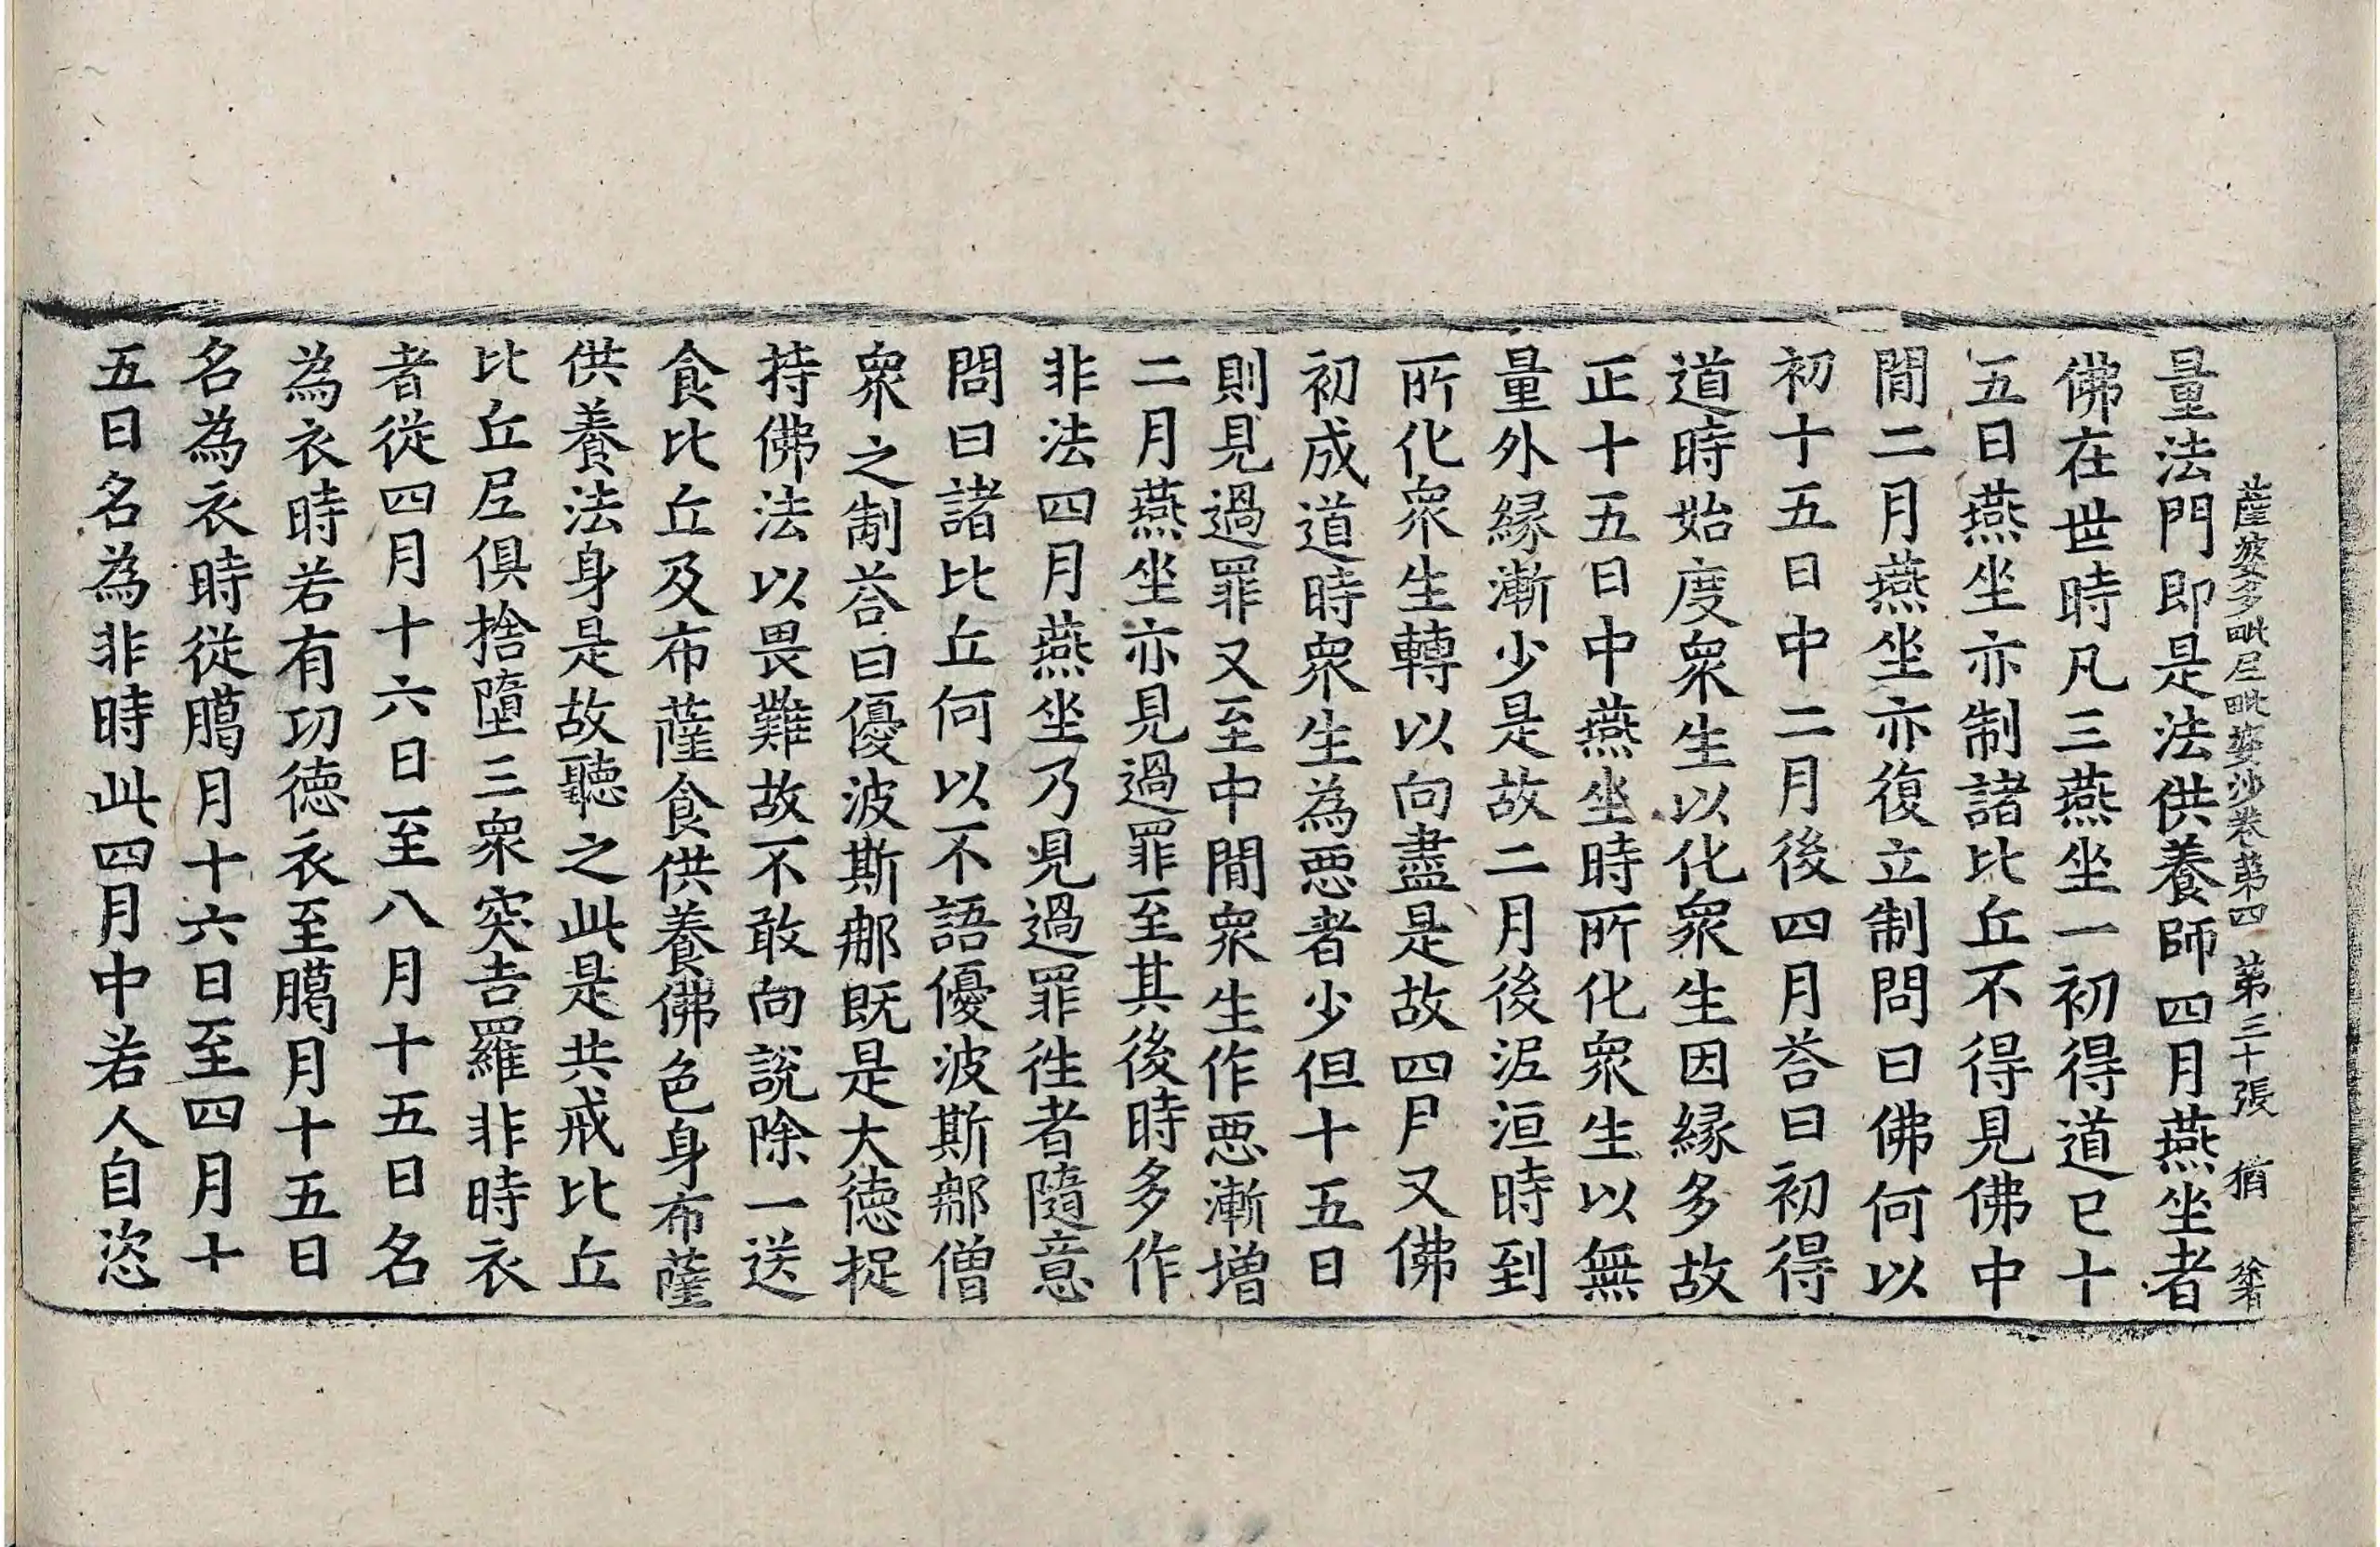 薩婆多毗尼毗婆沙卷第四 第三十張 猶
量法門即是法供養師四月燕坐者
佛在世時凡三燕坐一初得道已十
五日燕坐亦制諸比丘不得見佛中
間二月燕坐亦復立制問曰佛何以
初十五日中二月後四月荅曰初得
道時始度衆生以化衆生因縁多故
正十五日中燕坐時所化衆生以無
量外縁漸少是故二月後泥洹時到
所化衆生轉以向盡是故四月又佛
初成道時衆生為悪者少但十五日
則見過罪又至中間衆生作悪漸增
二月燕坐亦見過罪至其後時多作
非法四月燕坐乃見過罪徃者隨意
問曰諸比丘何以不語優波斯那僧
衆之制荅曰優波斯那既是大德捉
持佛法以畏難故不敢向說除一送
食比丘及布薩食供養佛色身布薩
供養法身是故聽之此是共戒比丘
比丘尼俱捨墮三衆突吉羅非時衣
者從四月十六日至八月十五日名
為衣時若有功德衣至臈月十五日
名為衣時從臈月十六日至四月十
五日名為非時此四月中若人自恣